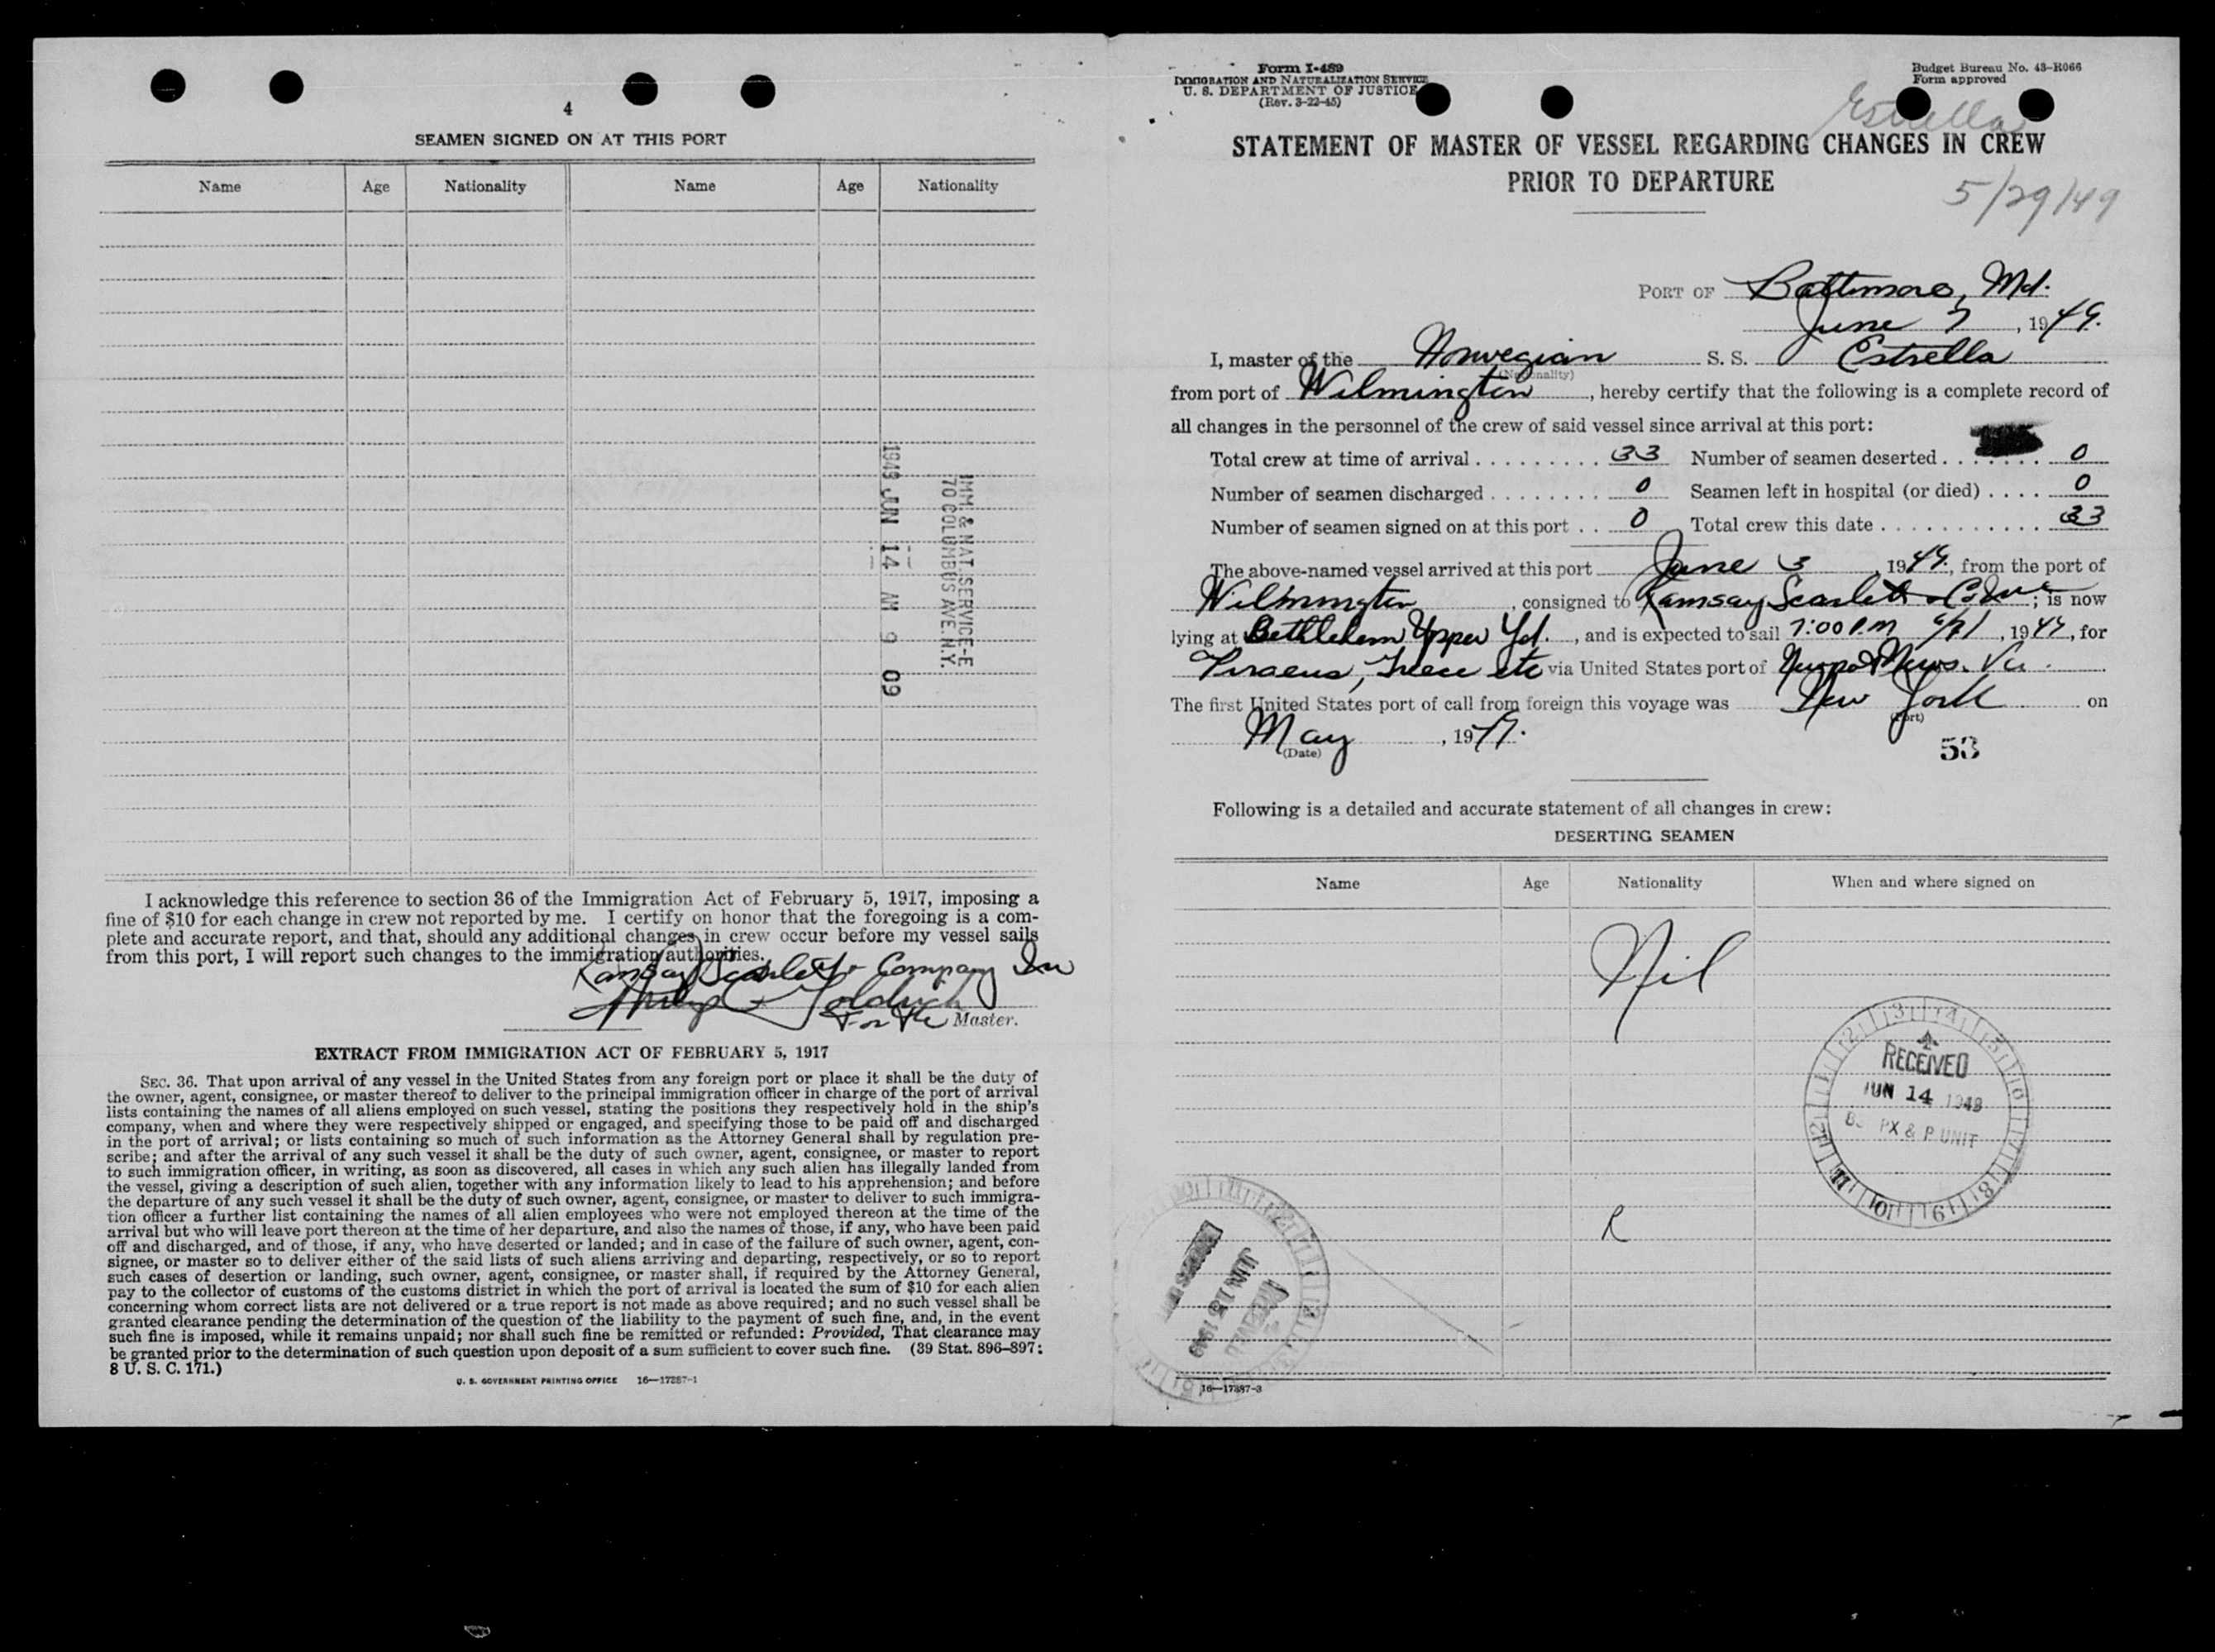 4
SEAMEN SIGNED ON AT THIS PORT
Name Age Nationality Name Age Nationality
IMM. & NAT. SERVICE-E
70 COLUMBUS AVE. N.Y.
1949 JUN 14 AM 9 09
I acknowledge this reference to section 36 of the Immigration Act of February 5, 1917, imposing a
fine of $10 for each change in crew not reported by me. I certify on honor that the foregoing is a com-
plete and accurate report, and that, should any additional changes in crew occur before my vessel sails
from this port, I will report such changes to the immigration authorities.
Ramsay Scarlett & Company Inc
Goldrich
For the Master.
EXTRACT FROM IMMIGRATION ACT OF FEBRUARY 5, 1917
SEC. 36. That upon arrival of any vessel in the United States from any foreign port or place it shall be the duty of
the owner, agent, consignee, or master thereof to deliver to the principal immigration officer in charge of the port of arrival
lists containing the names of all aliens employed on such vessel, stating the positions they respectively hold in the ship's
company, when and where they were respectively shipped or engaged, and specifying those to be paid off and discharged
in the port of arrival; or lists containing so much of such information as the Attorney General shall by regulation pre-
scribe; and after the arrival of any such vessel it shall be the duty of such owner, agent, consignee, or master to report
to such immigration officer, in writing, as soon as discovered, all cases in which any such alien has illegally landed from
the vessel, giving a description of such alien, together with any information likely to lead to his apprehension; and before
the departure of any such vessel it shall be the duty of such owner, agent, consignee, or master to deliver to such immigra-
tion officer a further list containing the names of all alien employees who were not employed thereon at the time of the
arrival but who will leave port thereon at the time of her departure, and also the names of those, if any, who have been paid
off and discharged, and of those, if any, who have deserted or landed; and in case of the failure of such owner, agent, con-
signee, or master so to deliver either of the said lists of such aliens arriving and departing, respectively, or so to report
such cases of desertion or landing, such owner, agent, consignee, or master shall, if required by the Attorney General,
pay to the collector of customs of the customs district in which the port of arrival is located the sum of $10 for each alien
concerning whom correct lists are not delivered or a true report is not made as above required; and no such vessel shall be
granted clearance pending the determination of the question of the liability to the payment of such fine, and, in the event
such fine is imposed, while it remains unpaid; nor shall such fine be remitted or refunded: Provided, That clearance may
be granted prior to the determination of such question upon deposit of a sum sufficient to cover such fine. (39 Stat. 896-897;
8 U. S. C. 171.)
U. S. GOVERNMENT PRINTING OFFICE 16—17387-1
Form I-489
IMMIGRATION AND NATURALIZATION SERVICE
U. S. DEPARTMENT OF JUSTICE
(Rev. 3-22-45)
Budget Bureau No. 43-R066
Form approved
Estrella
STATEMENT OF MASTER OF VESSEL REGARDING CHANGES IN CREW
PRIOR TO DEPARTURE
5/29/49
PORT OF Baltimore, Md.
June 7, 1949.
I, master of the Norwegian S. S. Estrella
(Nationality)
from port of Wilmington, hereby certify that the following is a complete record of
all changes in the personnel of the crew of said vessel since arrival at this port:
Total crew at time of arrival 33 Number of seamen deserted 0
Number of seamen discharged 0 Seamen left in hospital (or died) 0
Number of seamen signed on at this port 0 Total crew this date 33
The above-named vessel arrived at this port June 3, 1949, from the port of
Wilmington, consigned to Ramsay Scarlett & Co Inc; is now
lying at Bethlehem Upper Yd., and is expected to sail 7:00 P.M 6/7, 1949, for
Piraeus, Greece etc via United States port of Newport News, Va.
The first United States port of call from foreign this voyage was New York on
(Port)
May, 1949.
(Date)
53
Following is a detailed and accurate statement of all changes in crew:
DESERTING SEAMEN
Name Age Nationality When and where signed on
Nil
RECEIVED
JUN 14 1949
PX & P UNIT
R
JUN 15 1949
16—17387-3